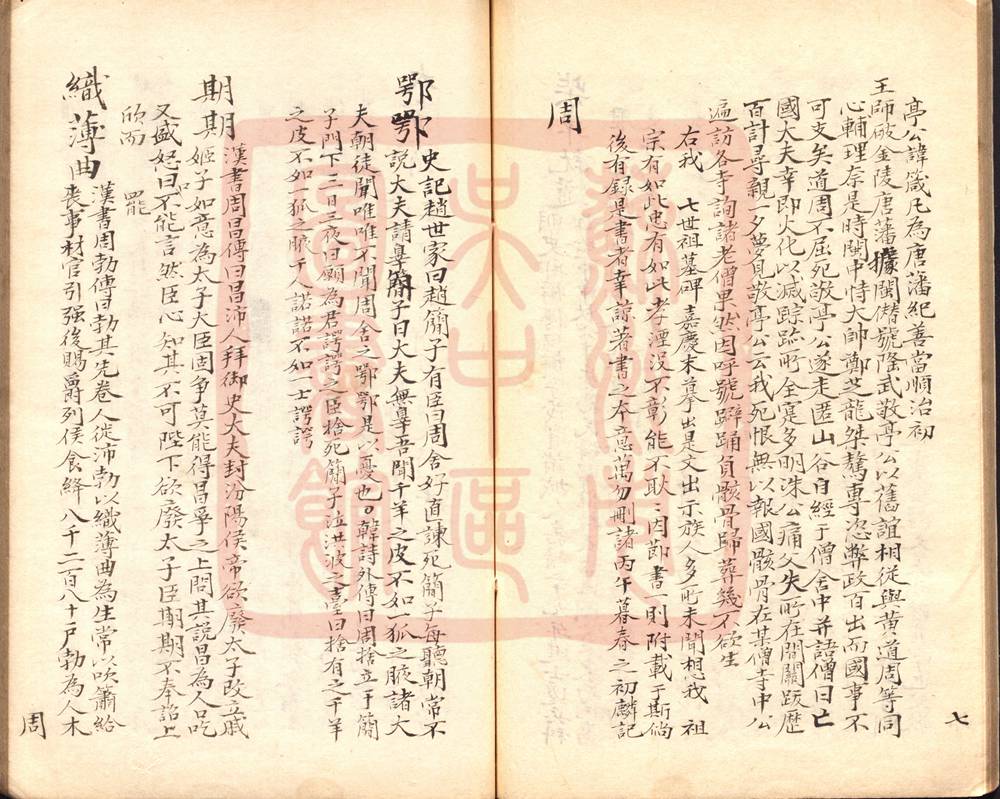 亭公諱箴凡為唐藩紀善當順治初
王師破金陵唐藩據閩僣號隆武敬亭公以舊誼相從與黄道周等同
心輔理奈是時閩中恃大帥鄭芝龍桀驁專恣弊政百出而國事不
可支矣道周不屈死敬亭公遂走匿山谷自經于僧舍中并語僧曰亡
國大夫幸即火化以滅踪跡所全寔多明洙公痛父失所在間關跋歷
百計尋親一夕夢見敬亭公云我死恨無以報國骸骨在某僧寺中公
遍訪各寺詢諸老僧果然因呼號擗踊負骸骨歸葬幾不欲生
右我 七世祖墓碑嘉慶末摹出是文出示族人多所未聞想我 祖
宗有如此忠有如此孝湮没不彰能不耿耿因節書一則附載于斯倘
後有録是書者幸諒著書之本意萬勿刪諸丙午暮春之初麟記
周
七
鄂鄂 史記趙世家曰趙簡子有臣曰周舍好直諫死簡子每聽朝常不
説大夫請辠簡子曰大夫無辠吾聞千羊之皮不如一狐之腋諸大
夫朝徒聞唯唯不聞周舍之鄂鄂是以憂也○韓詩外傳曰周捨立于簡
子門下三日三夜曰願為君諤諤之臣捨死簡子泣洪波之臺曰捨有之千羊
之皮不如一狐之腋千人諾諾不如一士諤諤
期期 漢書周昌傳曰昌沛人拜御史大夫封汾陽侯帝欲廢太子改立戚
姬子如意為太子大臣固争莫能得昌爭之上問其説昌為人口吃
又盛怒曰臣口不能言然臣心知其不可陛下欲廢太子臣期期不奉詔上
欣而 罷
織薄曲 漢書周勃傳曰勃其先卷人徙沛勃以織薄曲為生常以吹簫給
喪事材官引强後賜爵列侯食絳八千二百八十戸勃為人木
周